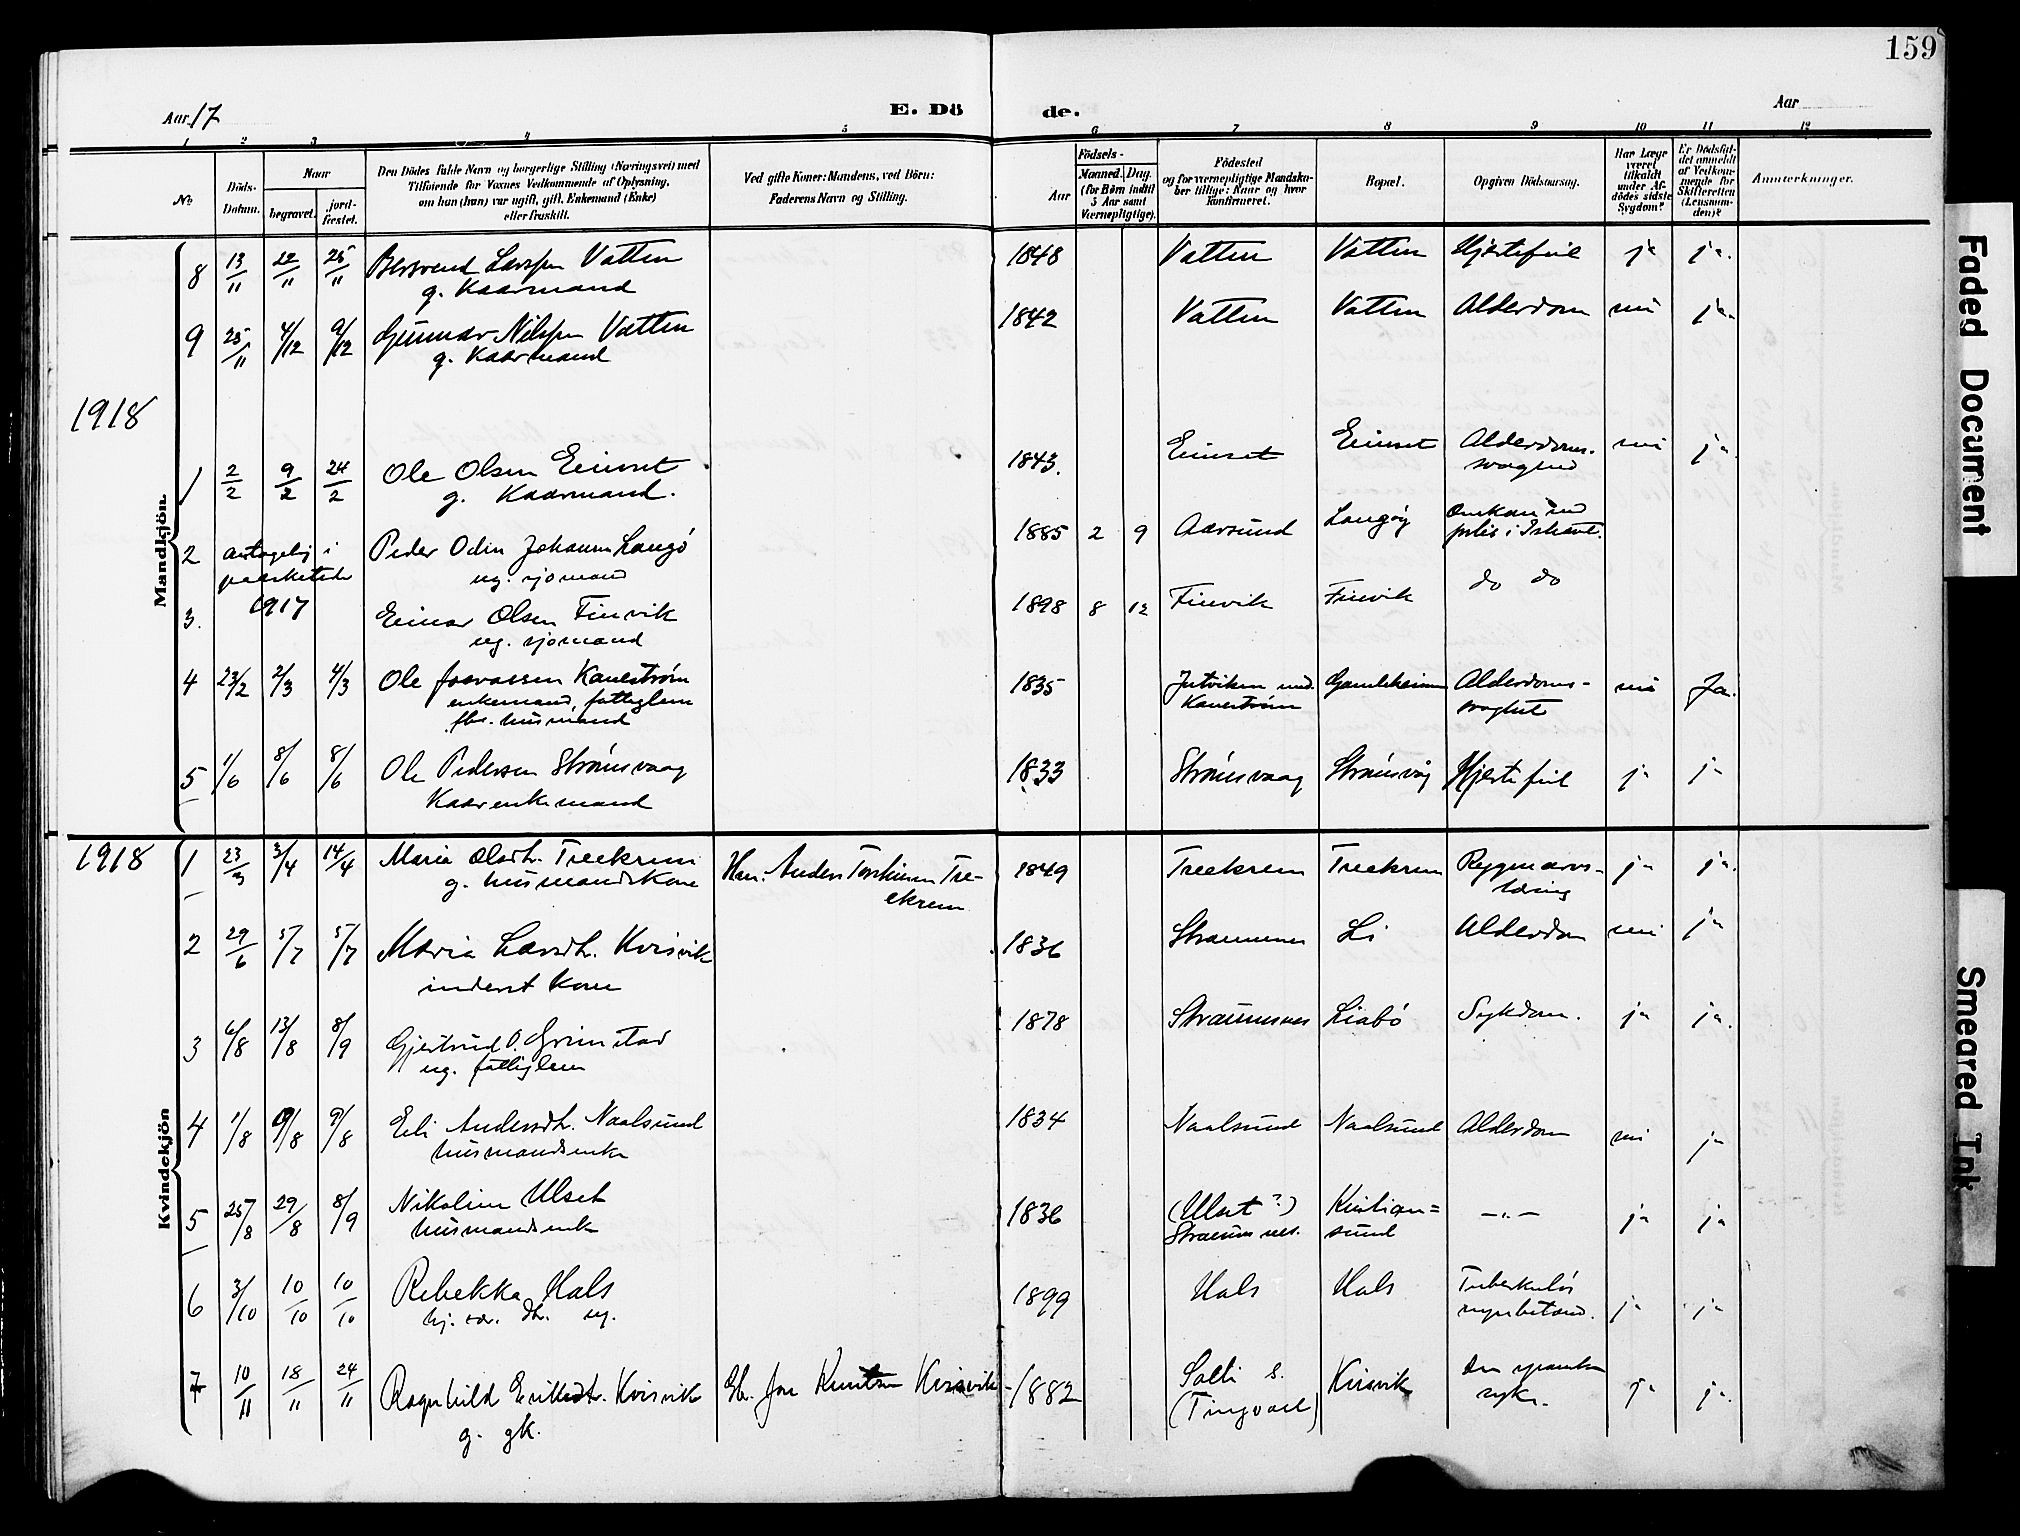 159
Aar 17
E. Dö de.
Aar
1 2 3 4 5 6 7 8 9 10 11 12
№
Döds-Datum.
Naar
begravet. jord-fæstet.
Den Dödes fulde Navn og borgerlige Stilling (Næringsvei) med
Tilföiende for Voxnes Vedkommende af Oplysning,
om han (hun) var ugift, gift, Enkemand (Enke)
eller fraskilt.
Ved gifte Koner: Mandens, ved Börn:
Faderens Navn og Stilling.
Aar
Födsels-
Maaned. Dag.
(for Börn indtil
5 Aar samt
Værnepligtige).
Födested
og for værnepligtige Mandska-
ber tillige: Naar og hvor
konfirmeret.
Bopæl.
Opgiven Dödsaarsag.
Har Læge
været
tilkaldt
under Af-
dödes sidste
Sygdom?
Er Dödsfal-
det anmeldt
af Vedkom-
mende for
Skifteretten
(Lensman-
den)?
Anmærkninger.
Mandkjön.
8 13/11 22/11 25/11 Larsen Vatten 1848 Vatten Vatten Hjertefeil ja ja.
g. Kaarmand
9 25/11 4/12 9/12 Gunnar Nilsen Vatten 1842 Vatten Vatten Alderdom nei ja.
g. Kaarmand
1918
1 2/2 9/2 24/2 Ole Olsen Einset 1843. Einset Einset Alderdoms- nei ja
g. Kaarmand. svaghed
2 antagelig i Peder Odin Johansen Langø 1885 2 9 Aarsund Langøy Omkommed
paaskeside ug. sjømand forlis i Ishavet.
3. 1917 Einar Olsen Finvik 1898 8 12 Finvik Finvik do do
ug. sjømand
4 23/2 2/3 4/3 Ole Kanestrøm 1835 Alderdoms- nei Ja.
enkemand, fattiglem Kanestrøm svaghet
fhv. husmand
5 1/6 8/6 8/6 Ole Pedersen Strømsvaag 1833 Strømsvaag Strømsvåg Hjertefeil ja ja
Kaarenkemand
Kvindekjön
1918
1 23/3 3/4 14/4 Maria Olsdtr. Treekrem Hm. Anders Torsteinsen Tre- 1849 Treekrem Treekrem Rygmarvs- ja ja.
g. husmandskone ekrem
2 29/6 5/7 5/7 Maria Larsdtr. Kvisvik 1836 Li Alderdom nei ja
inderst kone
3 6/8 13/8 8/9 Gjertrud O. Grimstad 1878 Straumsnes Liabø Sykdom. ja ja.
ug. fattiglem
4 1/8 9/8 9/8 Eli Andersdtr. Naalsund 1834 Naalsund Naalsund Alderdom nei ja
husmandsenke
5 25/8 29/8 8/9 Nikoline Ulset 1836 (Ulset?) Kristian= —"— ja ja
husmandsenke Straumsnes. sund
6 3/10 10/10 10/10 Rebekka Hals 1899 Hals Hals Tuberkuløs ja ja
dtr. ug.
7 10/11 18/11 24/11 Ragnhild Eriksdtr. Kvisvik Gbr. Jon Knutsen Kvisvik 1882 Kvisvik Den spanske ja ja.
g. gk. (Tingvoll) syke.
Faded Document
Smeared Ink